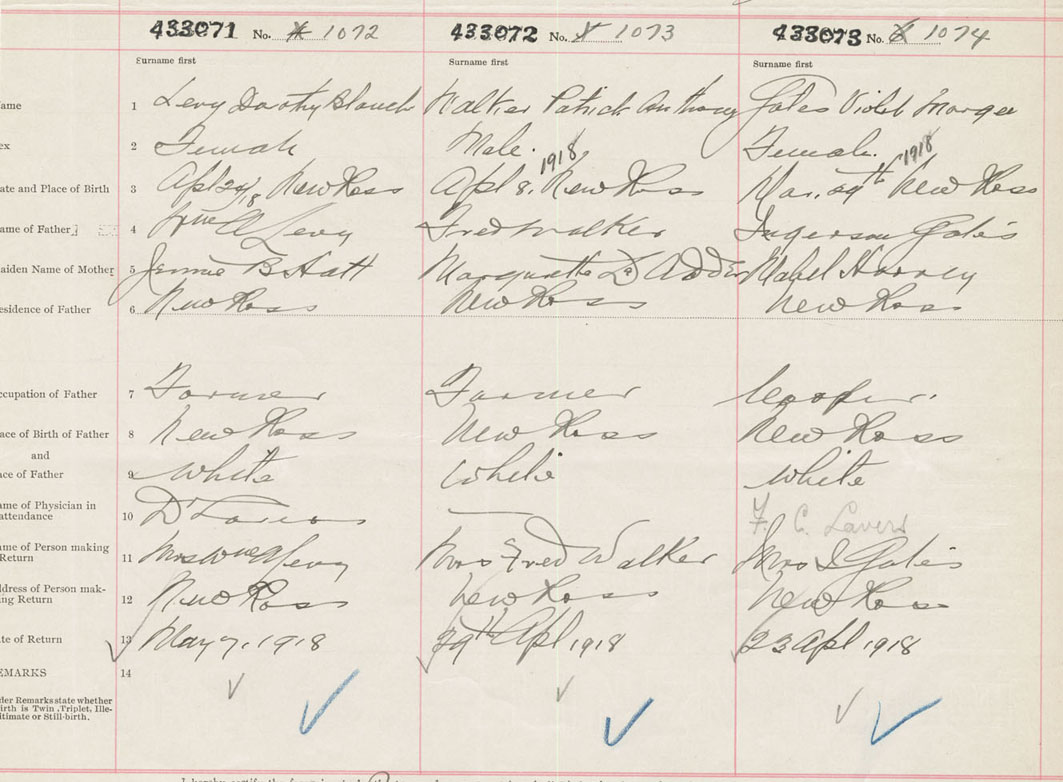 433071 No. 1072 433072 No. 1073 433073 No. 1074
Surname first Surname first Surname first
ame 1 Levy Dorothy Blanch Walker Patrick Anthony Gates Violet
ex 2 Female Male. Female.
1918 1918
ate and Place of Birth 3 Apl 29/18 New Ross Apl 8. New Ross Mar. 29th New Ross
ame of Father 4 Levy Fred Walker Ingerson Gates
aiden Name of Mother 5 Jennie B Hatt Mabel Harvey
esidence of Father 6 New Ross New Ross New Ross
ccupation of Father 7 Farmer Farmer Cooper.
ace of Birth of Father 8 New Ross New Ross New Ross
and
ace of Father 9 White White White
ame of Physician in
attendance 10 Dr Lavers — F. C. Lavers
ame of Person making
Return 11 Mrs Wm A Levy Mrs Fred Walker Mrs I Gates
ddress of Person mak-
ng Return 12 New Ross New Ross New Ross
te of Return 13 May 7, 1918 29th Apl 1918 23 Apl 1918
EMARKS 14
der Remarks state whether
irth is Twin, Triplet, Ille-
itimate or Still-birth.